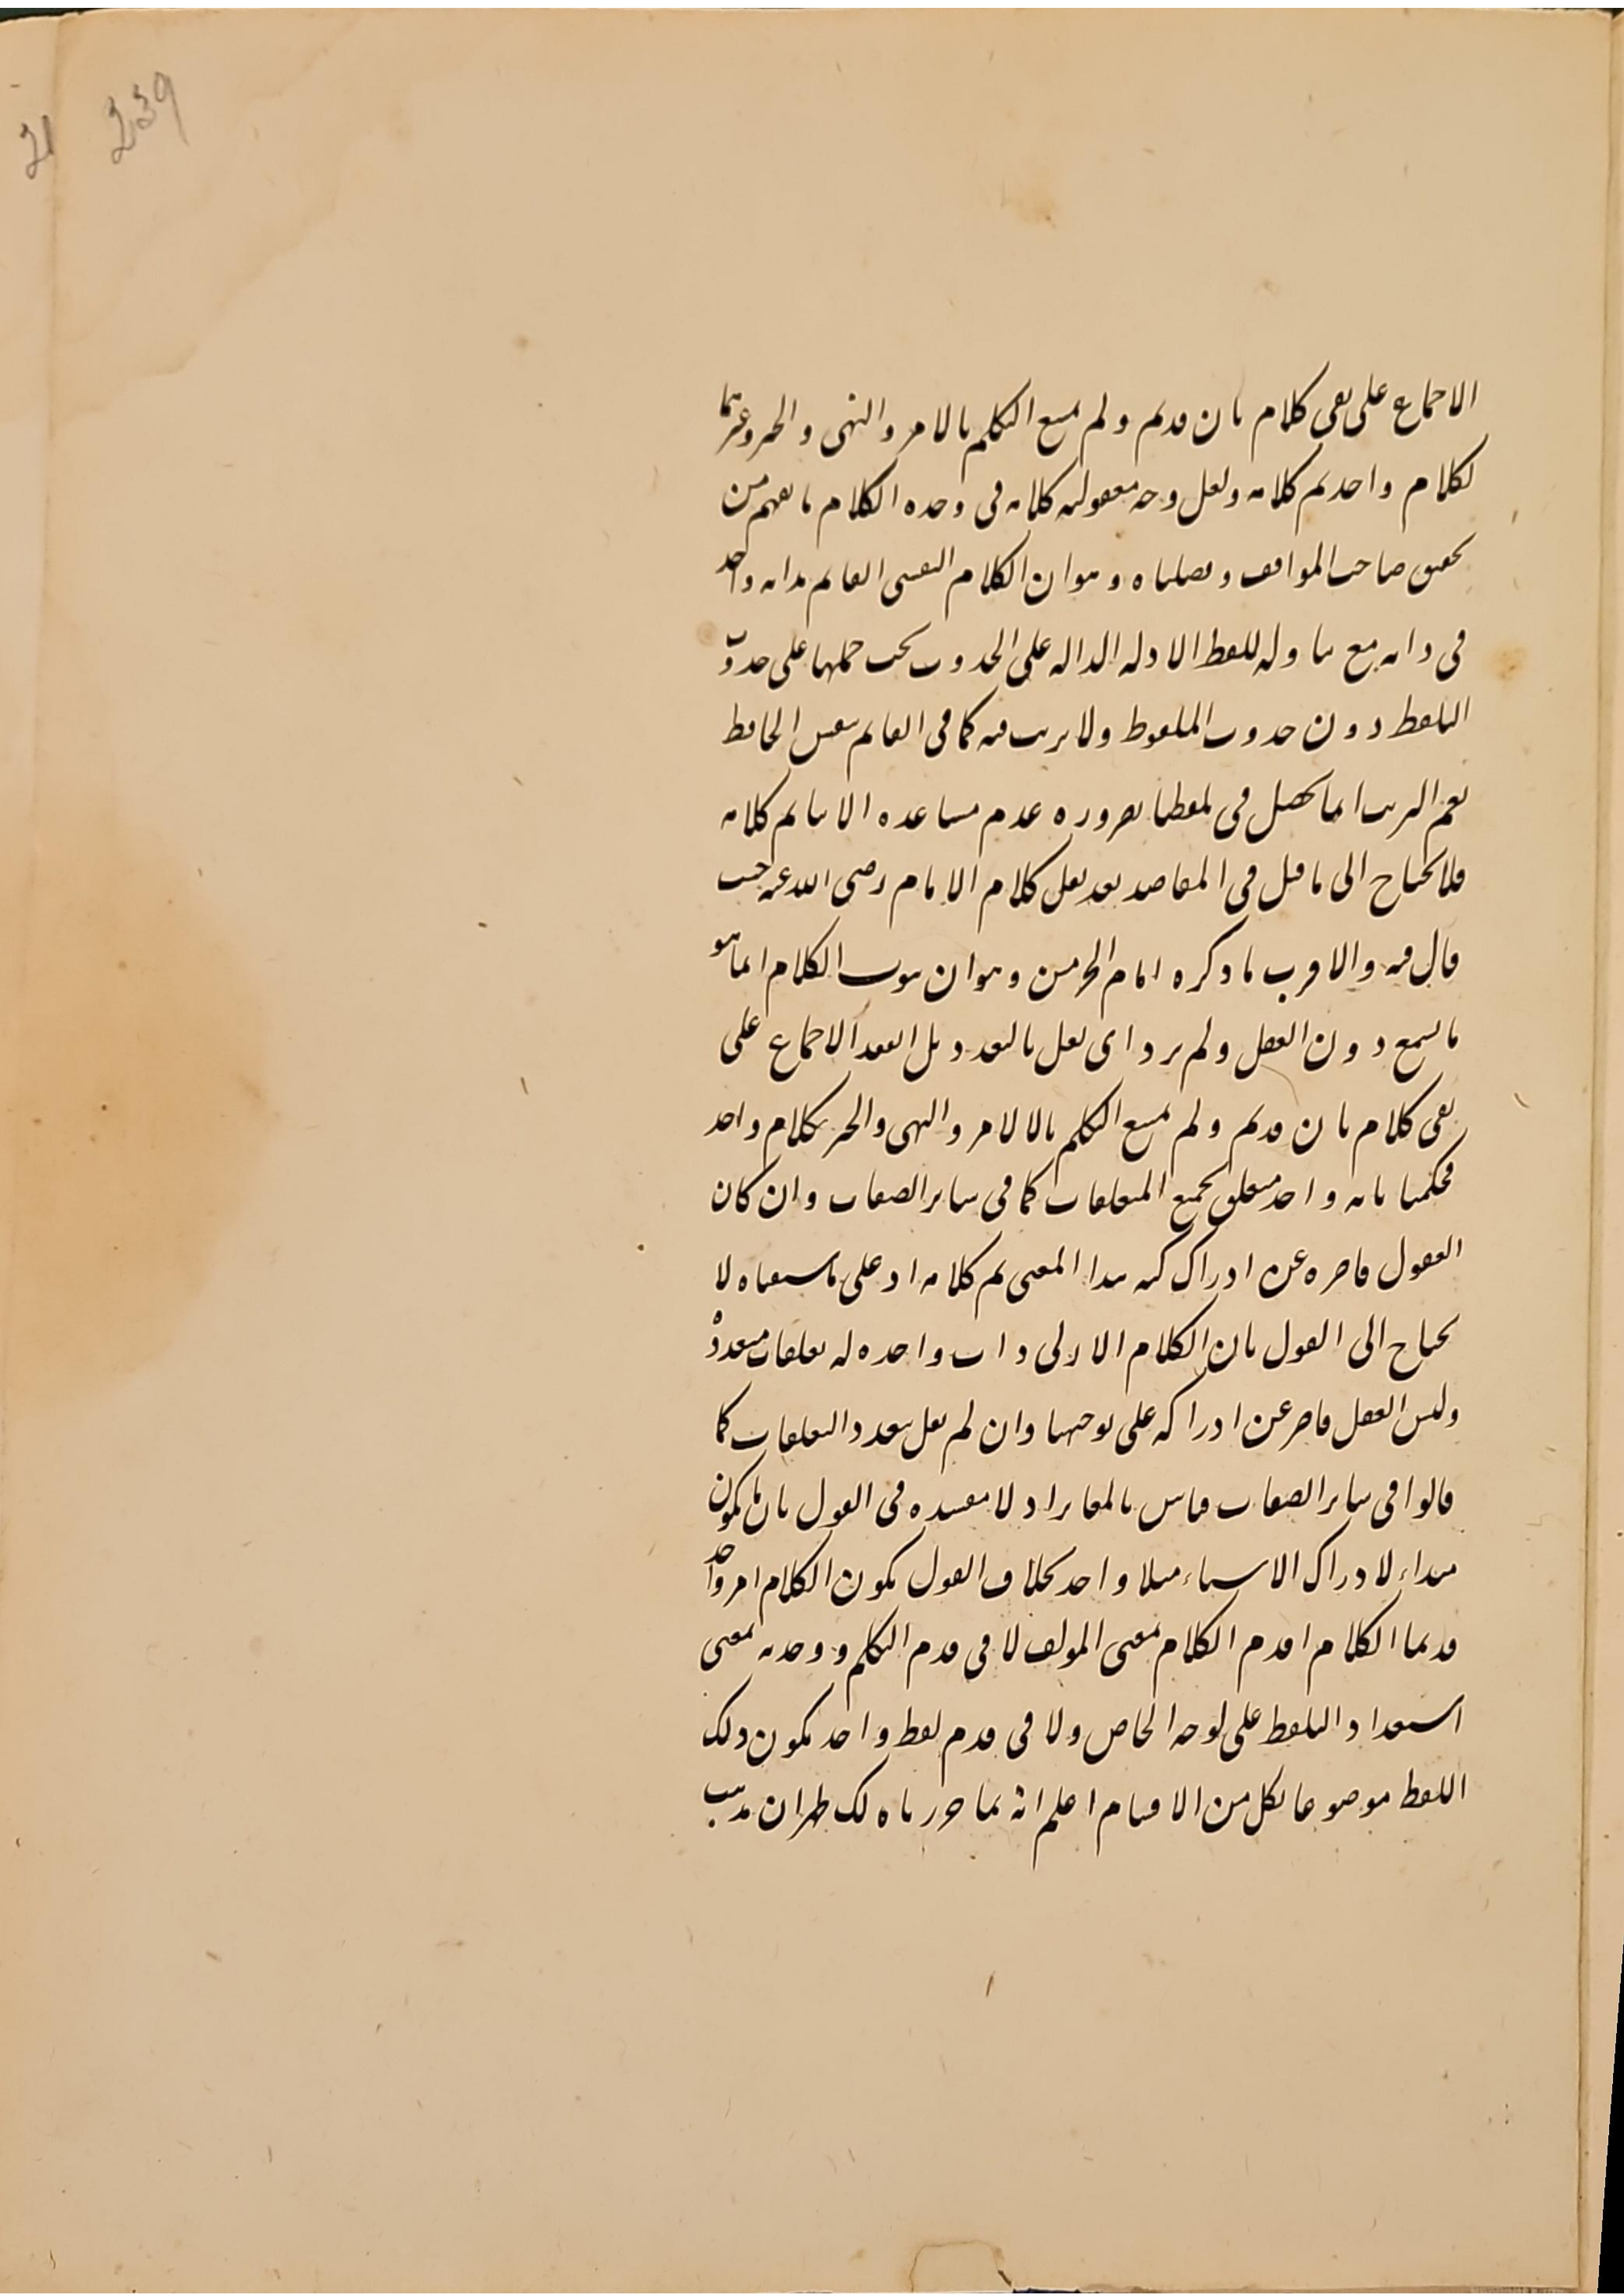 239
21
الاجماع على نفى كلام ثان قديم ولم يمتنع التكلم بالامر والنهى والخبر وغيرهما
لكلام واحد تم كلامه ولعل وجه معقولية كلامه فى وحدة الكلام ما يفهم من
تحقيق صاحب المواقف وفصلناه وهو ان الكلام النفسى القائم بذاته واحد
فى ذاته مع تناوله للفظ الادلة الدالة على الحدوث يجب حملها على حدوث
التلفظ دون حدوث الملفوظ ولا ترتب فيه كما فى القائم بنفس الحافظ
نعم الترتب انما يحصل فى تلفظنا بضرورة عدم مساعدة الالة تم كلامه
فلا يحتاج الى ما قيل فى المقاصد بعد نقل كلام الامام رضى الله عنه حيث
قال فيه والاقرب ما ذكره امام الحرمين وهو ان ثبوت الكلام انما هو
بالسمع دون العقل ولم يرد اى نقل بالتعدد بل انعقد الاجماع على
نفى كلام ثان قديم ولم يمتنع التكلم بالالامر والنهى والخبر بكلام واحد
فحكمنا بانه واحد متعلق بجميع المتعلقات كما فى سائر الصفات وان كان
العقول قاصرة عن ادراك كنه هذا المعنى تم كلامه اذ على ما سمعناه لا
يحتاج الى القول بان الكلام الازلى ذات واحدة له تعلقات متعددة
وليس العقل قاصر عن ادراكه على توجيهنا وان لم نقل بتعدد التعلقات كما
قالوا فى سائر الصفات قياس بالمغاير اذ لا مفسدة فى القول بان ما يكون
مبداء لادراك الاسماء مثلا واحد بخلاف القول بكون الكلام امر واحد
قديما الكلام ا قدم الكلام بمعنى المولف لا فى قدم التكلم ووحدته بمعنى
استعداد التلفظ على لوجه الخاص ولا فى قدم لفظ واحد يكون ذلك
اللفظ موضوعا لكل من الاقسام اعلم انه بما حررناه لك ظهر ان مذهب